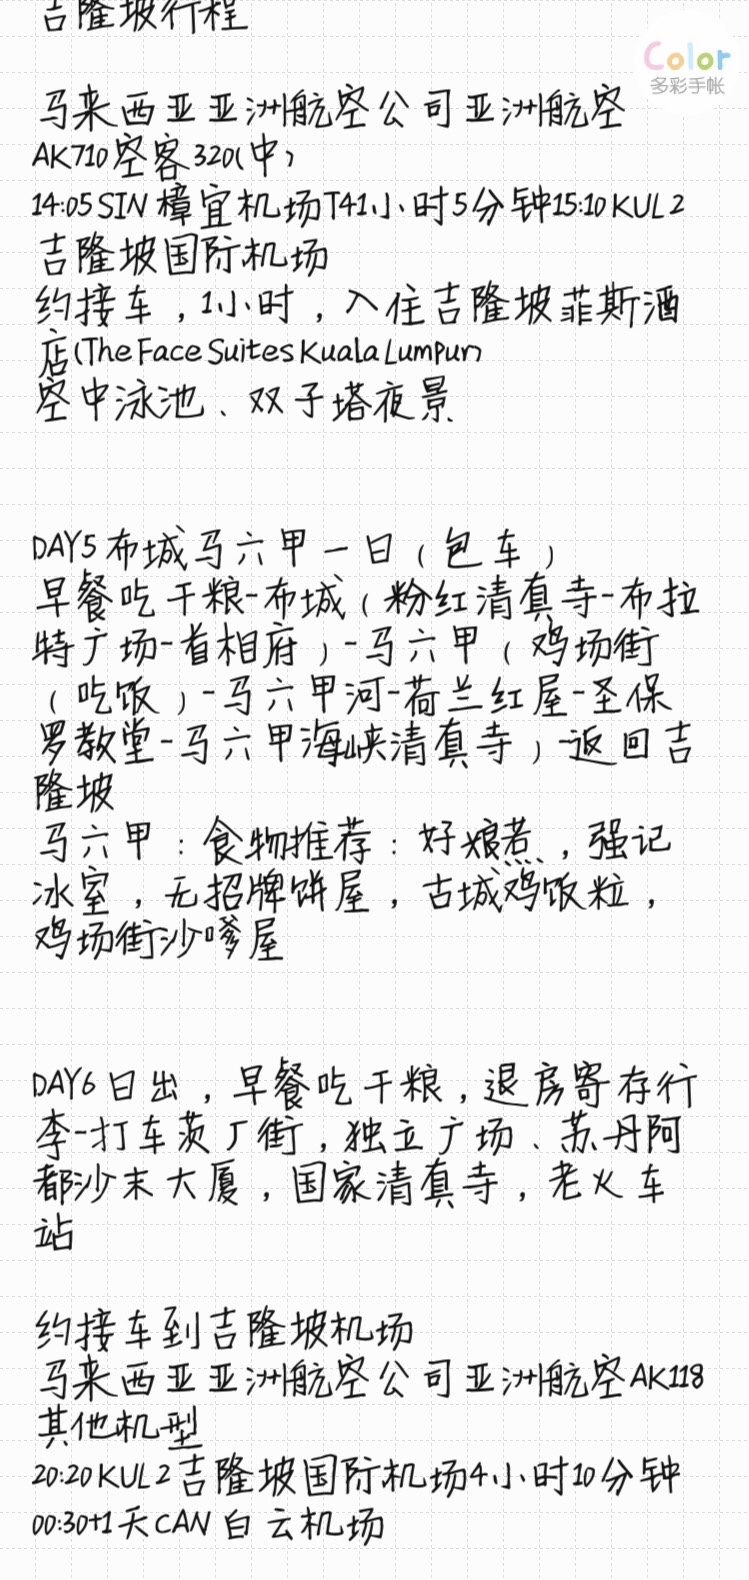 吉隆坡行程
Color
多彩手帐
马来西亚亚洲航空公司亚洲航空
AK710空客320(中)
14:05 SIN 樟宜机场T41小时5分钟15:10 KUL 2
吉隆坡国际机场
约接车，1小时，入住吉隆坡菲斯酒
店(The Face Suites Kuala Lumpur)
空中泳池、双子塔夜景
DAY5布城马六甲一日（包车）
早餐吃干粮-布城（粉红清真寺-布拉
特广场-首相府）-马六甲（鸡场街
（吃饭）-马六甲河-荷兰红屋-圣保
罗教堂-马六甲海峡清真寺）-返回吉
隆坡
马六甲：食物推荐：好娘惹，强记
冰室，无招牌饼屋，古城鸡饭粒，
鸡场街沙嗲屋
DAY6日出，早餐吃干粮，退房寄存行
李-打车茨厂街，独立广场、苏丹阿
都沙末大厦，国家清真寺，老火车
站
约接车到吉隆坡机场
马来西亚亚洲航空公司亚洲航空AK118
其他机型
20:20 KUL 2吉隆坡国际机场4小时10分钟
00:30+1天CAN 白云机场